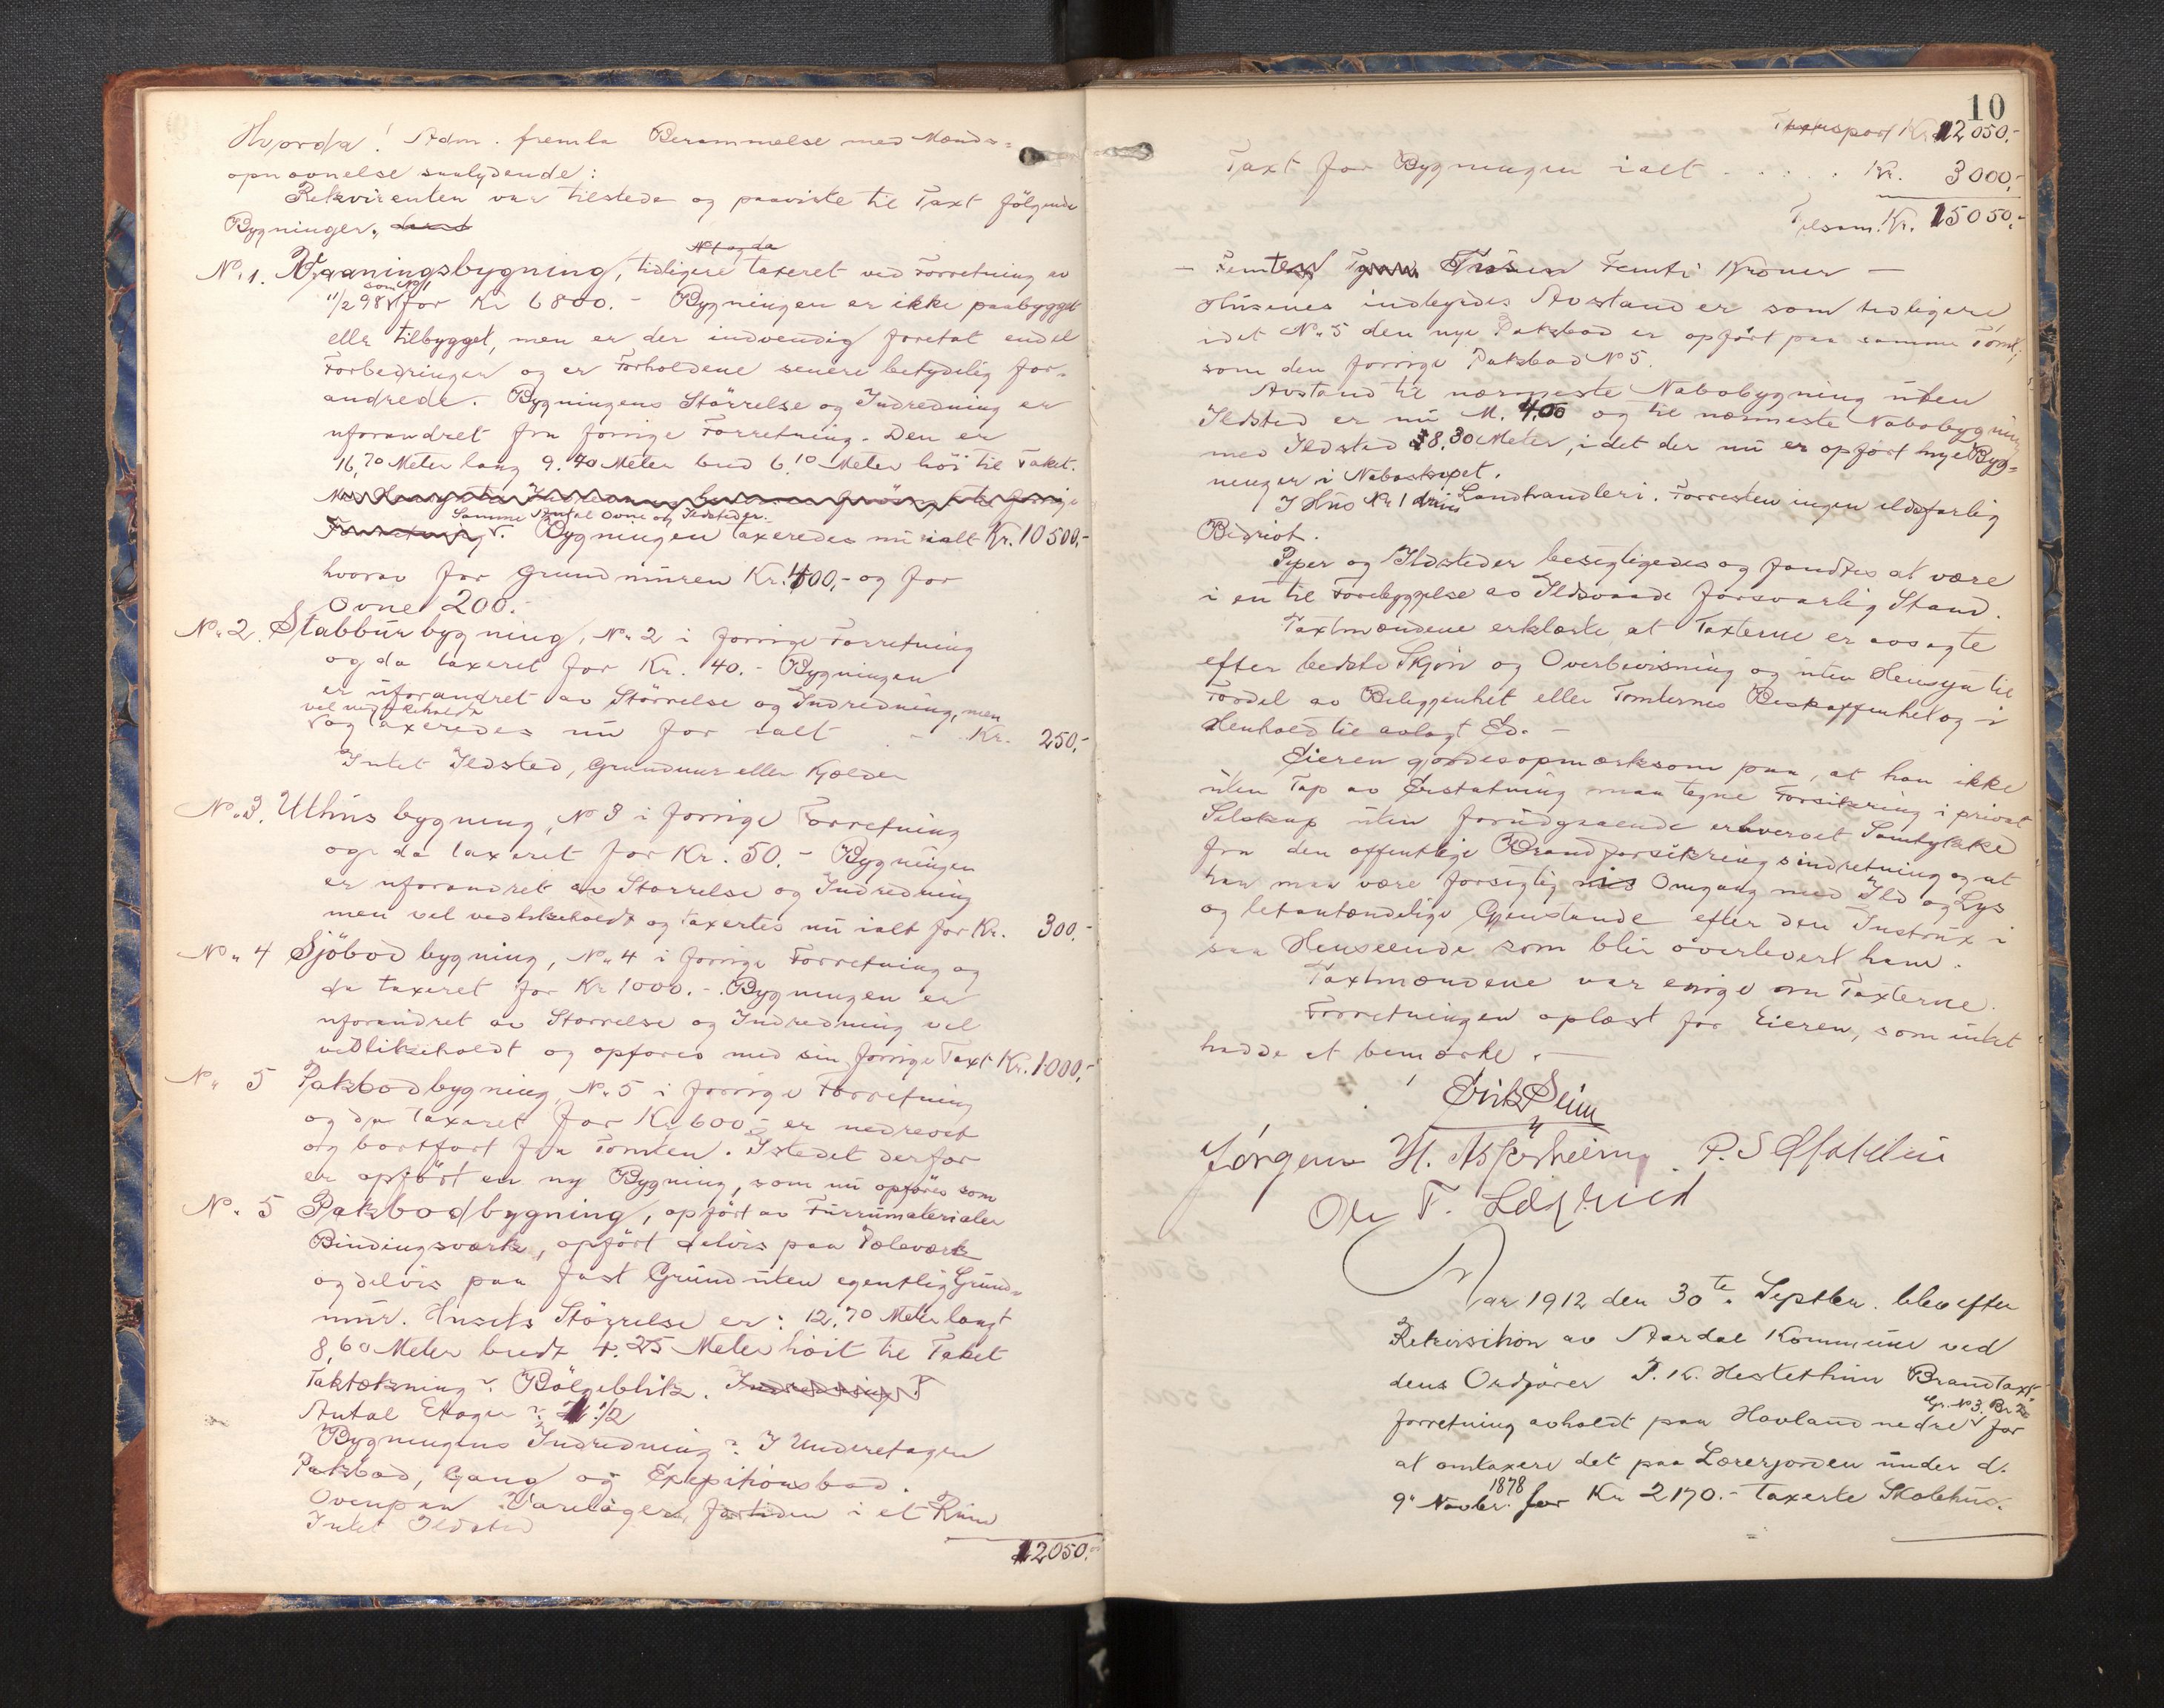 Hvorda! Adm. fremla Berammelse med Mænds-
opnævnelse saalydende:
Rekvirenten var tilstede og paaviste til Taxt følgende
Bygninger.
No. 1. Vaaningsbygning, tidligere taxeret ved Forretning av
No 1 og da
11/2 98 som No 1 for Kr 6800.- Bygningen er ikke paabygget
eller tilbygget, men er der indvendig foretat endel
Forbedringer og er Forholdene senere betydelig for-
andrede. Bygningens Störrelse og Indredning er
uforandret fra forrige Forretning. Den er
16,70 Meter lang 9.40 Meter bred 6,10 Meter höi til Taket.
Samme Antal Ovne og Ildsteder.
Forretning. Bygningen taxeredes nu ialt Kr. 10500,-
hvorav for Grundmuren Kr. 400,- og for
Ovne 200.-
No. 2. Stabbürbygning, No. 2 i forrige Forretning
og da taxeret for Kr. 40.- Bygningen
er uforandret av Störrelse og Indredning, men
vel vedlikeholdt
og taxeredes nu for ialt - Kr. 250,-
Intet Ildsted, Grundmur eller Kjælder
No. 3. Uthusbygning, No 3 i forrige Forretning
og da taxeret for Kr. 50.- Bygningen
er uforandret av Störrelse og Indredning
men vel vedlikeholdt og taxertes nu ialt for Kr. 300.-
No. 4 Sjöbodbygning, No. 4 i forrige Forretning og
da taxeret for Kr 1000.-. Bygningen er
uforandret av Störrelse og Indredning vel
vedlikeholdt og opføres med sin forrige Taxt Kr. 1000,-
No. 5 Pakbodbygning, No. 5 i forrige Forretning
og da taxeret for Kr 600,- er nedrevet
og bortført fra Tomten. Istedet derfor
er opfört en ny Bygning, som nu opföres som
No. 5 Pakbodbygning, opfört av Furrumaterialer
Bindingsværk, opfört delvis paa Pæleværk
og delvis paa fast Grund uten egentlig Grund-
mur. Husets Störrelse er: 12,70 Meter langt
8,60 Meter bredt 4.25 Meter höit til Taket
Taktækning? Bölgeblik. Indredning?
Antal Etager? 1 1/2
Bygningens Indredning? I Underetagen
Pakbod, Gang og Expeditionsbod.
Ovenpaa Varelager, fortiden i et Rum
Intet Ildsted
12050.-
10
Transport Kr. 12050,-
Taxt for Bygningen ialt . . . . . Kr. 3000,-
Tilsam. Kr. 15050,-
- Femten Tusen Femti Kroner -
Husenes indbyrdes Avstand er som tidligere
idet No. 5 den nye Pakbod er opfört paa samme Tomt,
som den forrige Pakbod No 5.
Avstand til nærmeste Nabobygning uten
Ildsted er nu M. 4,00 og til nærmeste Nabobygning
med Ildsted 8,30 Meter, idet der nu er opført nye Byg-
ninger i Naboskapet.
I Hus No 1 drives Landhandleri. Forresten ingen ildsfarlig
Bedrift.
Piper og Ildsteder besigtigedes og fandtes at være
i en til Forebyggelse av Ildsvaade forsvarlig Stand.
Taxtmændene erklærte at Taxterne er avsagte
efter bedste Skjön og Overbevisning og uten Hensyn til
Fordel av Beliggenhet eller Tomternes Beskaffenhet og i
Henhold til avlagt Ed. -
Eieren gjordes opmerksom paa, at han ikke
uten Tap av Erstatning maa tegne Forsikring i privat
Selskap uten forudgaaende erhvervet Samtykke
fra den offentlige Brandforsikringsindretning og at
han maa være forsigtig med Omgang med Ild og Lys
og letantændelige Gjenstande efter den Instrux i
saa Henseende som blir overlevert ham.
Taxtmændene var enige om Taxterne.
Forretningen oplæst for Eieren, som intet
hadde at bemærke. -
Eirik Seim
Jørgen H. Asperheim
Ole T.
Aar 1912 den 30te Septbr. blev efter
Rekvisition av Aardal Kommune ved
dens Ordfører J. K. Hestethun Brandtaxt-
Gr. No 3. Br. 2
forretning avholdt paa Hovland nedre for
at omtaxere det paa Lærerjorden under d.
9de Novbr. 1878 for Kr 2170.- taxerte Skolehus.